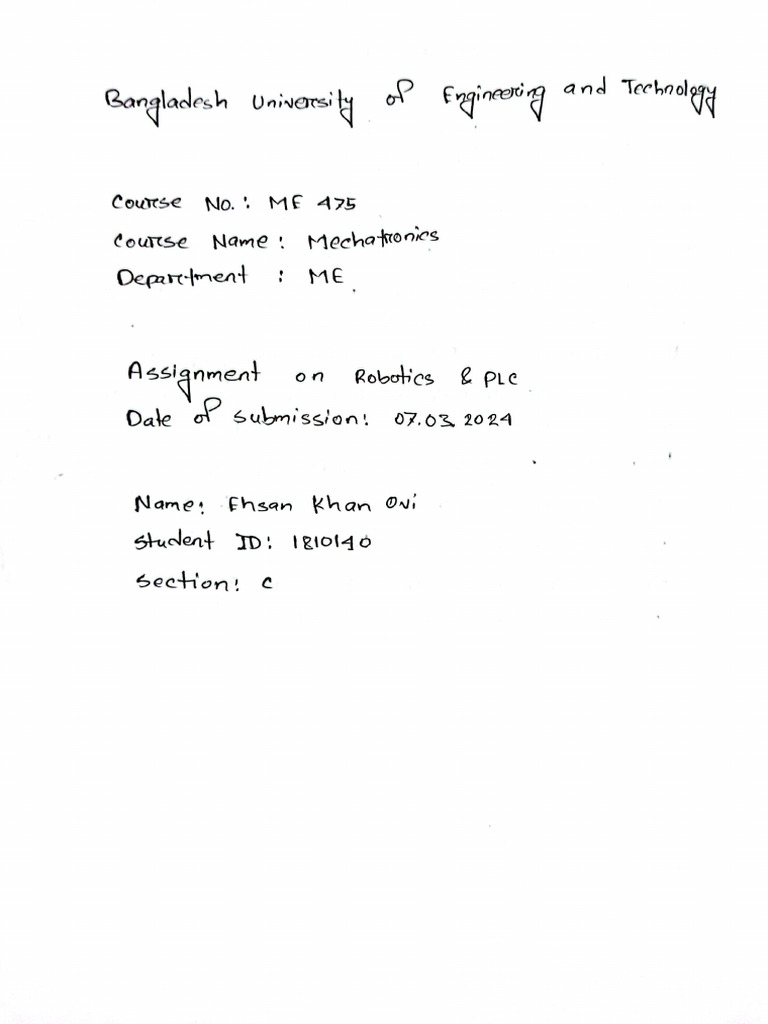 Bangladesh University of Engineering and Technology
Course No.: ME 475
Course Name: Mechatronics
Department : ME
Assignment on Robotics & PLC
Date of submission: 07.03.2024
Name: Ehsan Khan Ovi
Student ID: 1810140
Section: C